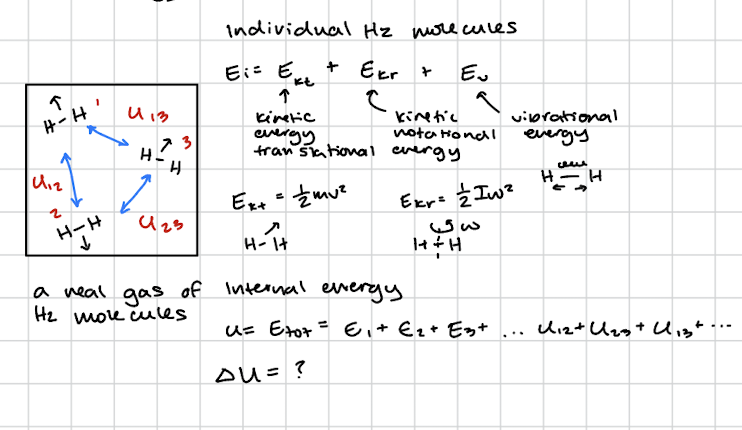 Individual H2 molecules
Ei = Ekt + Ekr + Ev
kinetic energy translational
kinetic rotational energy
vibrational energy
H-H 1
U13
H-H 3
U12
2 H-H
U23
H-H
Ekt = 1/2 mv²
Ekr = 1/2 Iω²
H-H
H-H ω
a real gas of
H2 molecules
Internal energy
U = Etot = E1 + E2 + E3 + ... U12 + U23 + U13 + ...
ΔU = ?